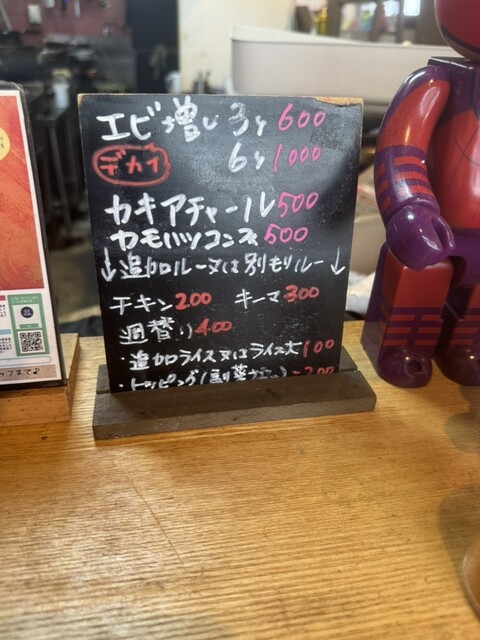 エビ増し 3ヶ 600
デカイ 6ヶ 1000
カキアチャール 500
カモハツコンフィ 500
↓追加ルー又は別もりルー↓
チキン 200 キーマ 300
週替り 400
・追加ライス又はライス大 100
・トッピング(